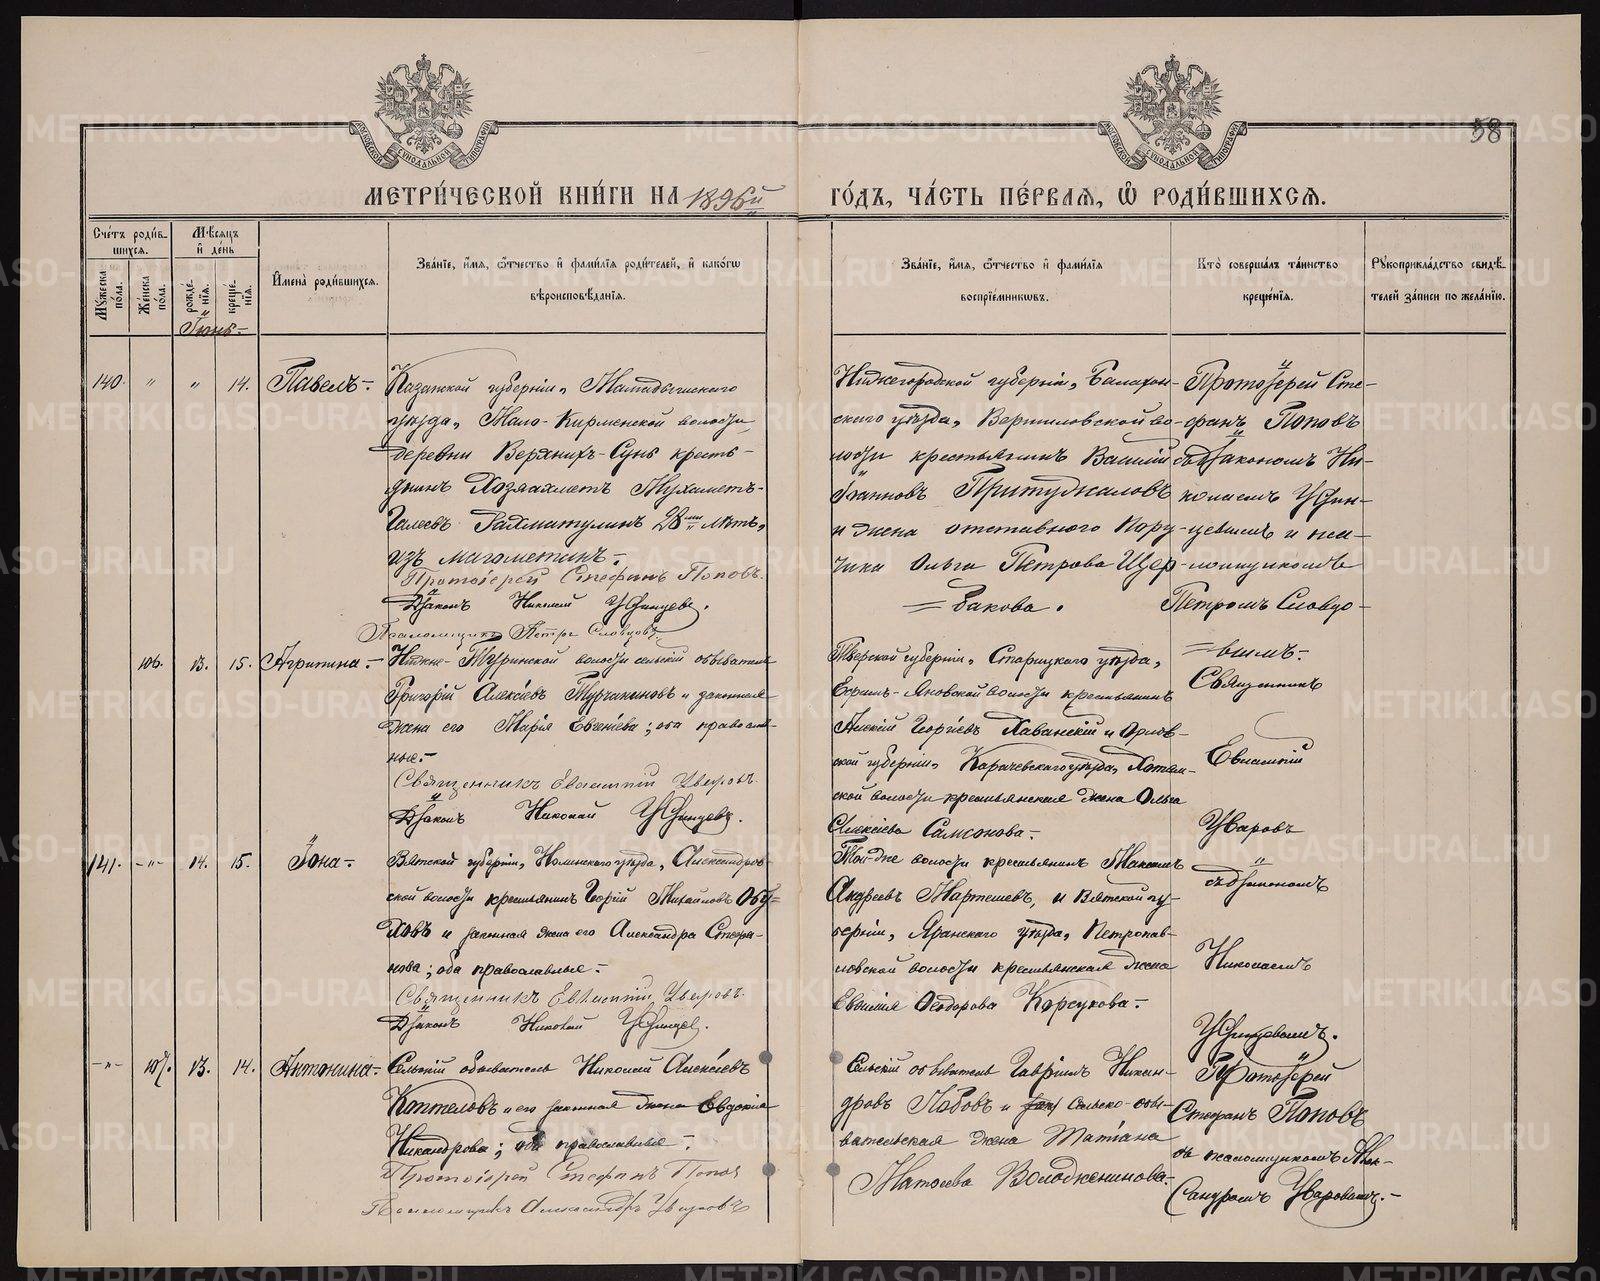 58
МЕТРИ́ЧЕСКОЙ КНИ́ГИ НА 1896й ГО́ДЪ, ЧА́СТЬ ПЕ́РВАЯ, Ѿ РОДИ́ВШИХСЯ.
Сче́тъ роди́в-
шихся.
Мꙋ́жеска по́ла.
Же́нска по́ла.
Мѣ́сяцъ и де́нь
рожде́-нія.
креще́-нія.
Имена̀ роди́вшихся.
Зва́ніе, и́мя, о́тчество и фами́лія роди́телей, и како́гѡ
вѣроисповѣ́данія.
Зва́ніе, и́мя, о́тчество и фами́лія
воспріе́мникѡвъ.
Кто̀ соверша́лъ та́инство
креще́нія.
Рꙋкоприкла́дство свидѣ́-
телей за́писи по жела́нію.
Іюнь
140. " " 14. Павелъ.
Казанской губерніи, Мамадышскаго
уѣзда, Мало-Кирменской волости,
деревни Верхнихъ-Сунь кресть-
янинъ Хозяахметъ Мухаметъ-
Галеевъ Рахматулинъ 28ми лѣтъ,
изъ магометанъ.
Протоіерей Стефанъ Поповъ.
Діаконъ Николай
Псаломщикъ Петръ Словцовъ
Нижегородской губерніи, Балахон-
скаго уѣзда, Вершиловской во-
лости крестьянинъ Василій
Іоанновъ Притужаловъ
и жена отставного
Ольга Петрова Щер-
бакова.
Протоіерей Сте-
фанъ Поповъ
съ діакономъ Ни-
колаемъ
и пса-
ломщикомъ
Петромъ Словцо-
вымъ.
106. 13. 15. Агрипина.
Нижне-Туринской волости сельскій обыватель
Григорій Алексѣевъ Турчаниновъ и законная
жена его Марія Евгеніева; оба православ-
ные.
Священникъ Евлампій Уваровъ.
Діаконъ Николай
Тверской губерніи, Старицкаго уѣзда,
волости крестьянинъ
Алексій Георгіевъ Хаванскій и Орлов-
ской губерніи, Карачевскаго уѣзда,
ской волости крестьянская жена Ольга
Алексѣева Самсонова.
Священникъ
Евлампій
Уваровъ
съ діакономъ
Николаемъ
141. -"- 14. 15. Іона.
Вятской губерніи, Нолинскаго уѣзда, Александров-
ской волости крестьянинъ Михаиловъ Обу-
ховъ и законная жена его Александра Стефа-
нова; оба православные.
Священникъ Евлампій Уваровъ.
Діаконъ Николай
Той-же волости крестьянинъ Максимъ
Андреевъ и Вятской гу-
берніи, Яранскаго уѣзда, Петропав-
ловской волости крестьянская жена
Евфимія Ѳеодорова
-"- 107. 13. 14. Антонина.
Сельскій обыватель Николай Алексѣевъ
Коптеловъ и его законная жена Евдокія
Никандрова; оба православные.
Протоіерей Стефанъ Поповъ
Псаломщикъ Александръ Уваровъ
Сельскій обыватель Гавріилъ Никан-
дровъ и сельско-обы-
вательская жена Татіана
Матѳеева Володженинова.
Протоіерей
Стефанъ Поповъ
съ псаломщикомъ Алек-
сандромъ Уваровымъ.
METRIKI.GASO-URAL.RU